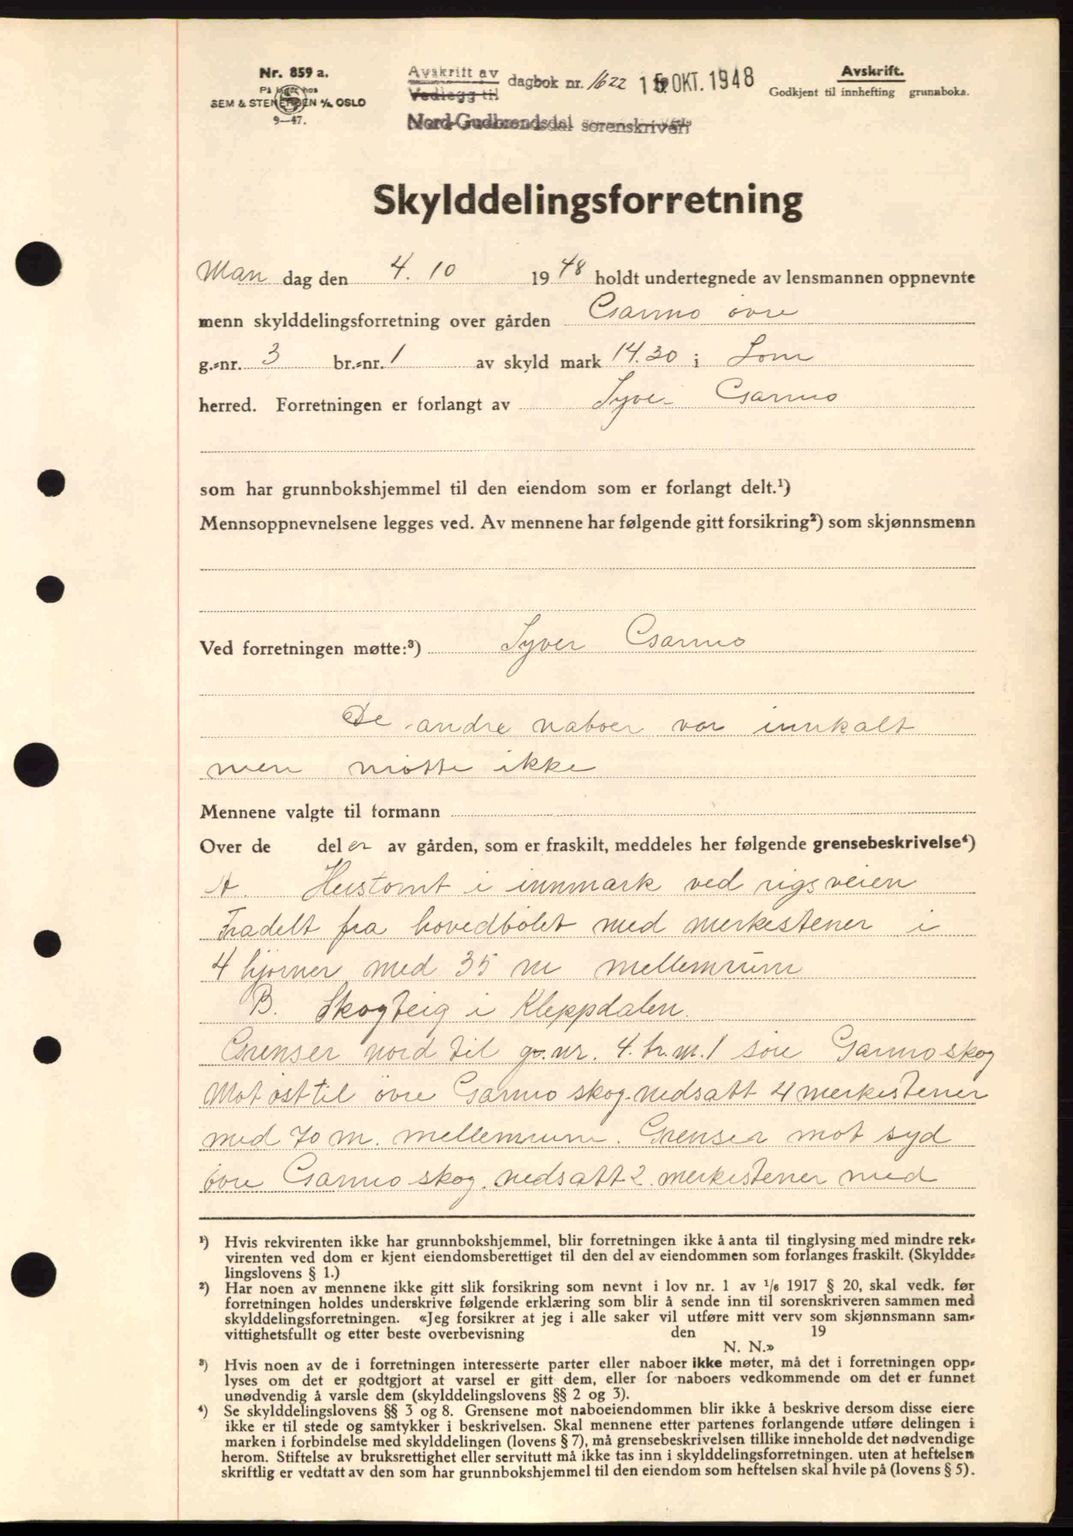 Nr. 859 a.
På lager hos
SEM & STENERSEN A/S, OSLO
9—47.
Avskrift av
Vedlegg til
dagbok nr. 1622 15 OKT. 1948
Nord-Gudbrandsdal sorenskriveri
Avskrift.
Godkjent til innhefting grunnboka.
Skylddelingsforretning
Man dag den 4. 10 1948 holdt undertegnede av lensmannen oppnevnte
menn skylddelingsforretning over gården Garmo øvre
g.nr. 3 br.nr. 1 av skyld mark 14.30 i Lom
herred. Forretningen er forlangt av Syver Garmo
som har grunnbokshjemmel til den eiendom som er forlangt delt.¹)
Mennsoppnevnelsene legges ved. Av mennene har følgende gitt forsikring²) som skjønnsmenn
Ved forretningen møtte:³) Syver Garmo
De andre naboer var innkalt
men møtte ikke
Mennene valgte til formann
Over de del er av gården, som er fraskilt, meddeles her følgende grensebeskrivelse⁴)
A. Hustomt i innmark ved rigsveien
Fradelt fra hovedbølet med merkestener i
4 hjørner med 35 m mellemrum
B. Skogteig i Kleppdalen.
Grenser nord til g.nr. 4. br.nr. 1 søre Garmo skog
Mot øst til øvre Garmo skog. nedsatt 4 merkestener
med 70 m. mellemrum. Grenser mot syd
øvre Garmo skog. nedsatt 2. merkestener med
¹) Hvis rekvirenten ikke har grunnbokshjemmel, blir forretningen ikke å anta til tinglysing med mindre rek-
virenten ved dom er kjent eiendomsberettiget til den del av eiendommen som forlanges fraskilt. (Skyldde-
lingslovens § 1.)
²) Har noen av mennene ikke gitt slik forsikring som nevnt i lov nr. 1 av ¹/₆ 1917 § 20, skal vedk. før
forretningen holdes underskrive følgende erklæring som blir å sende inn til sorenskriveren sammen med
skylddelingsforretningen. «Jeg forsikrer at jeg i alle saker vil utføre mitt verv som skjønnsmann sam-
vittighetsfullt og etter beste overbevisning den 19
N. N.»
³) Hvis noen av de i forretningen interesserte parter eller naboer ikke møter, må det i forretningen opp-
lyses om det er godtgjort at varsel er gitt dem, eller for naboers vedkommende om det er funnet
unødvendig å varsle dem (skylddelingslovens §§ 2 og 3).
⁴) Se skylddelingslovens §§ 3 og 8. Grensene mot naboeiendommen blir ikke å beskrive dersom disse eiere
ikke er til stede og samtykker i beskrivelsen. Skal mennene etter partenes forlangende utføre delingen i
marken i forbindelse med skylddelingen (lovens § 7), må grensebeskrivelsen tillike inneholde det nødvendige
herom. Stiftelse av bruksrettighet eller servitutt må ikke tas inn i skylddelingsforretningen. uten at heftelsen
skriftlig er vedtatt av den som har grunnbokshjemmel til den eiendom som heftelsen skal hvile på (lovens § 5).